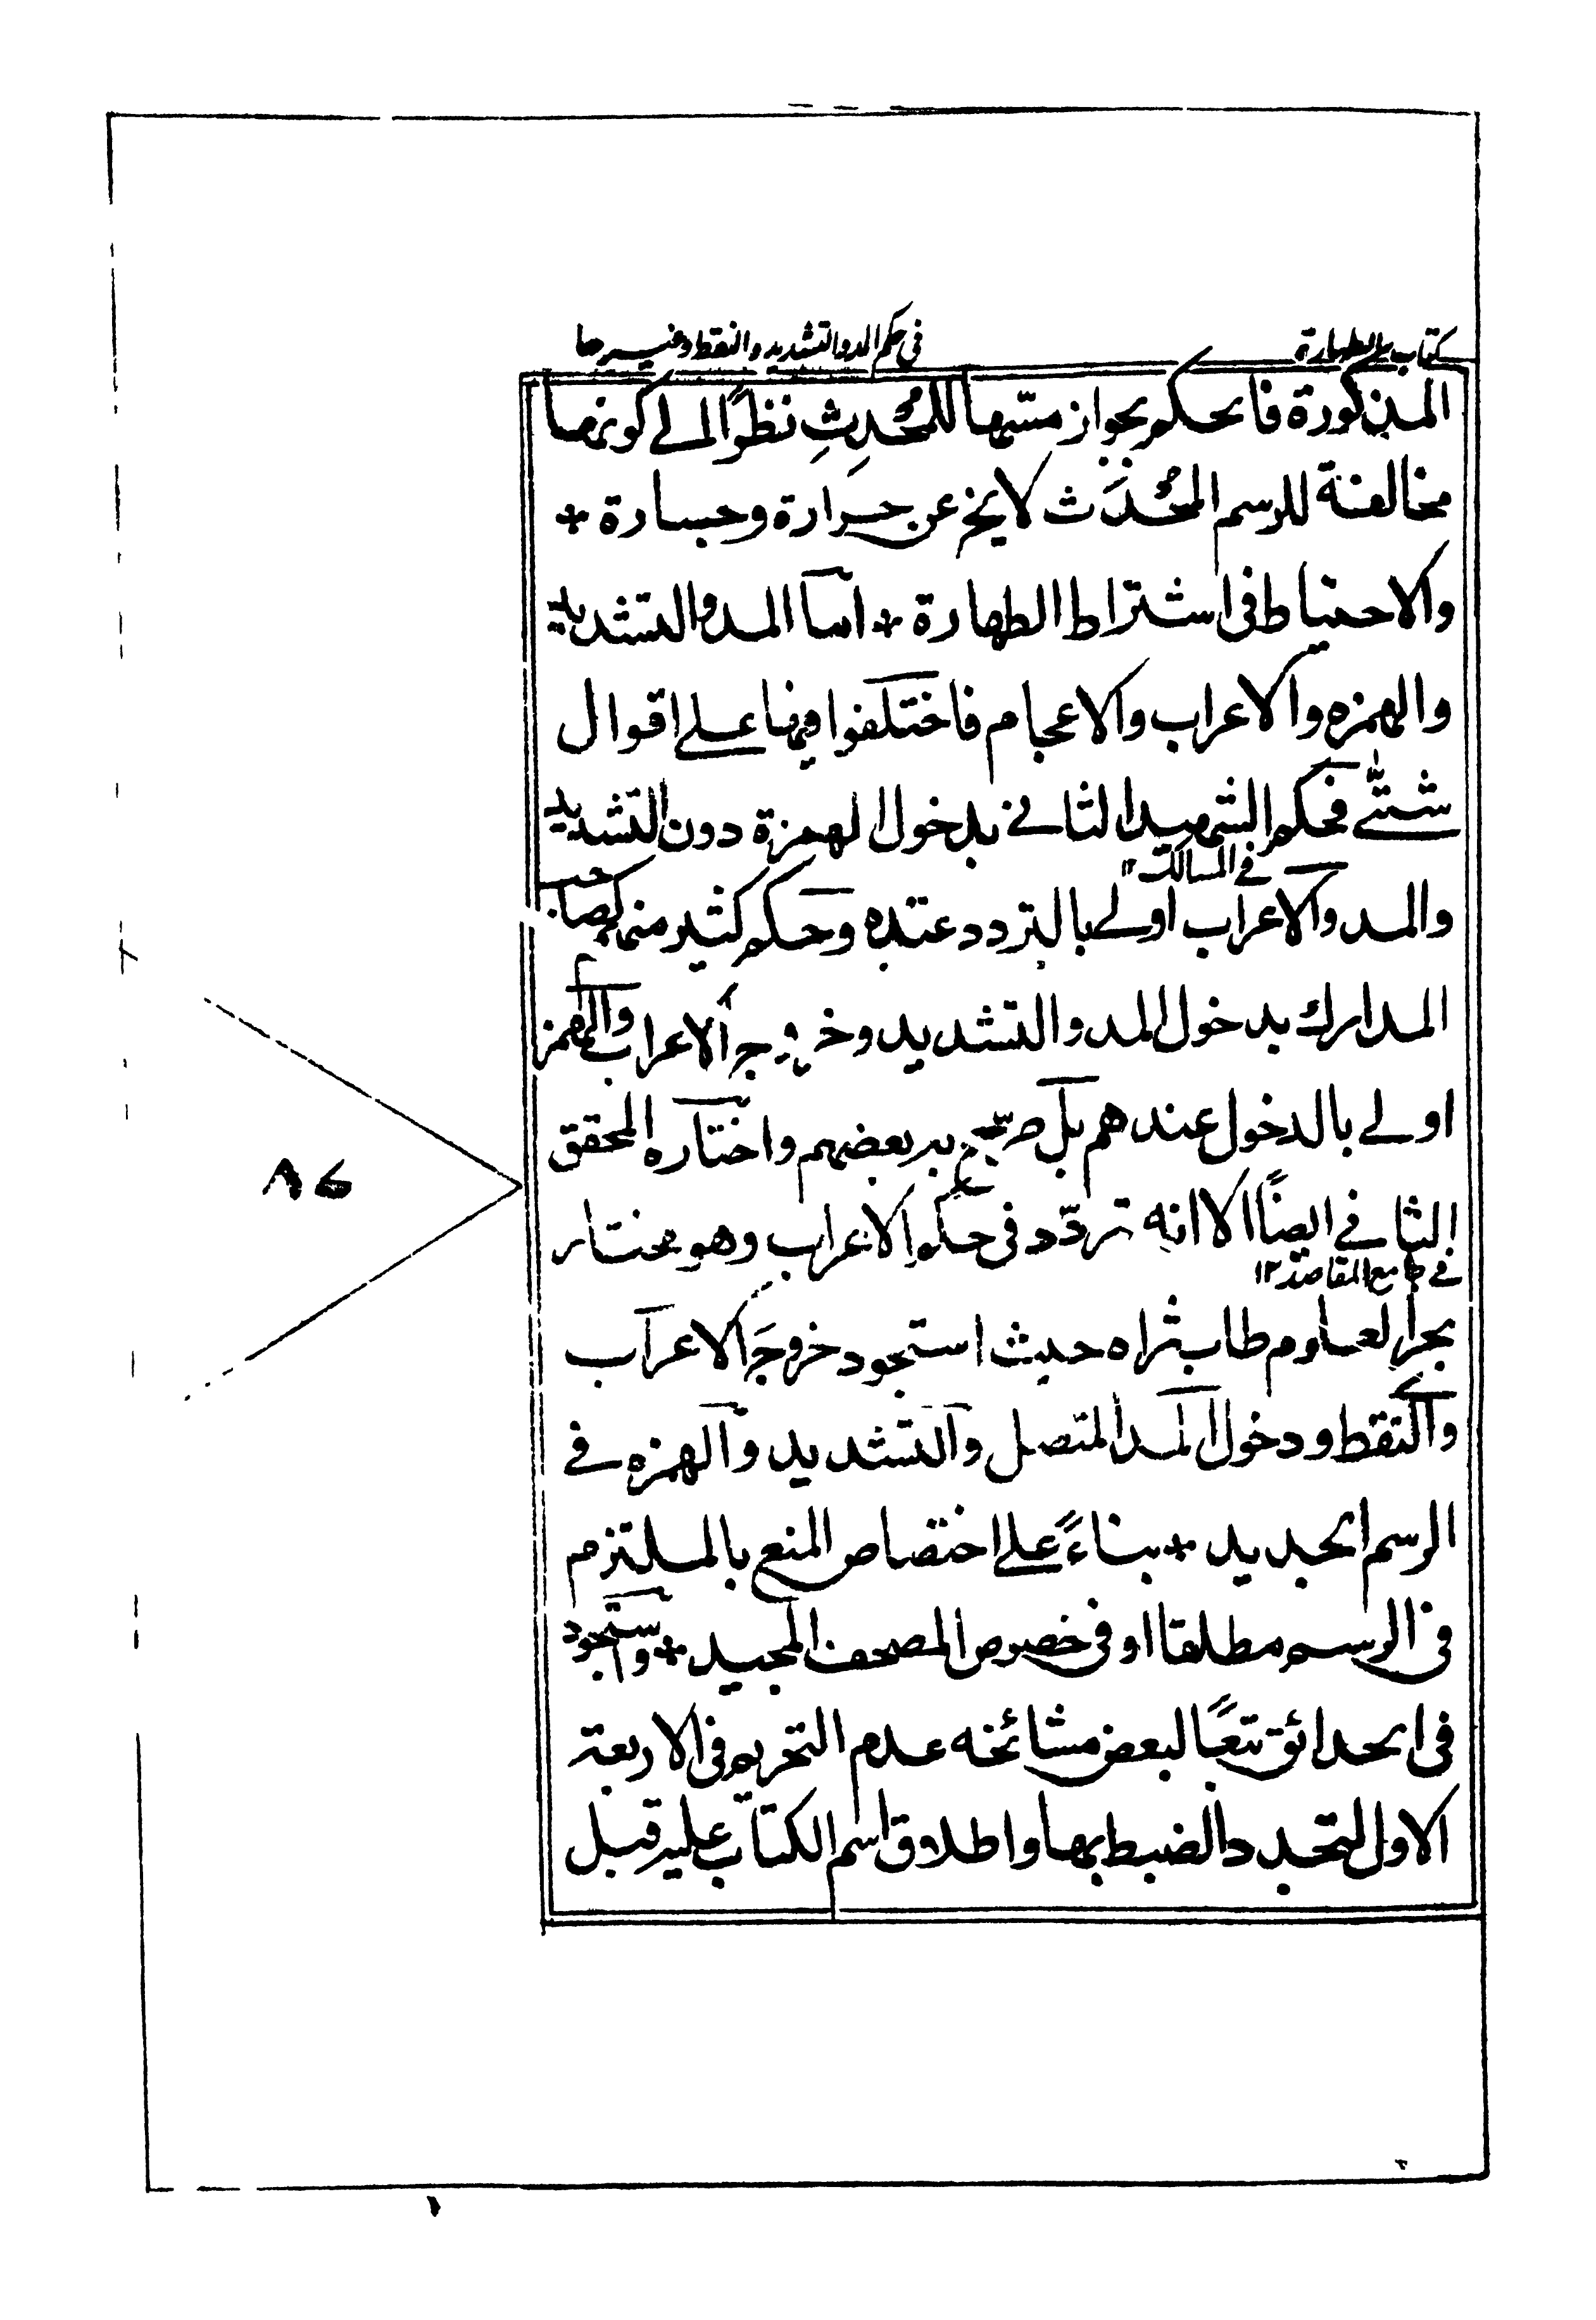 كتاب الطهارة
في حكم المد والتشديد والنقط وغيرها
المذكورة فالحكم بجواز مسّها للمُحْدِثِ نظرًا الى كونها
مخالفة للرسم المُحْدَث لا يخ عن جرارة وجسارة *
والاحتياط في اشتراط الطهارة * امّا المد والتشديد
والهمزه والاعراب والاعجام فاختلفوا فيها على اقوال
شتّى فحكم الشهيد الثاني بدخول الهمزة دون التشديد
في المسالك ١٢
والمد والاعراب اولى بالتردد عنده وحكم كثير منهم كصاحب
المدارك بدخول المد والتشديد وخروج الاعراب والهمز
اولى بالدخول عندهم بل صرّح به بعضهم واختاره المحقق
الثاني ايضًا الا انه تردّد في حكم الاعراب وهو مختار
في جامع المقاصد ١٢
بحر العلوم طاب ثراه حيث استجود خروجَ الاعراب
والنقط ودخول المد المتصل والتشديد والهمزه في
الرسم الجديد * بناءً على اختصاص المنع بالملتزم
في الرسم مطلقا او في خصوص المصحف المجيد * واستجود
في الحدائق تبعًا لبعض مشائخه عدم التحريم في الاربعة
الاول لتجدد الضبط بها واطلاق اسم الكتاب عليه قبل
٨٦